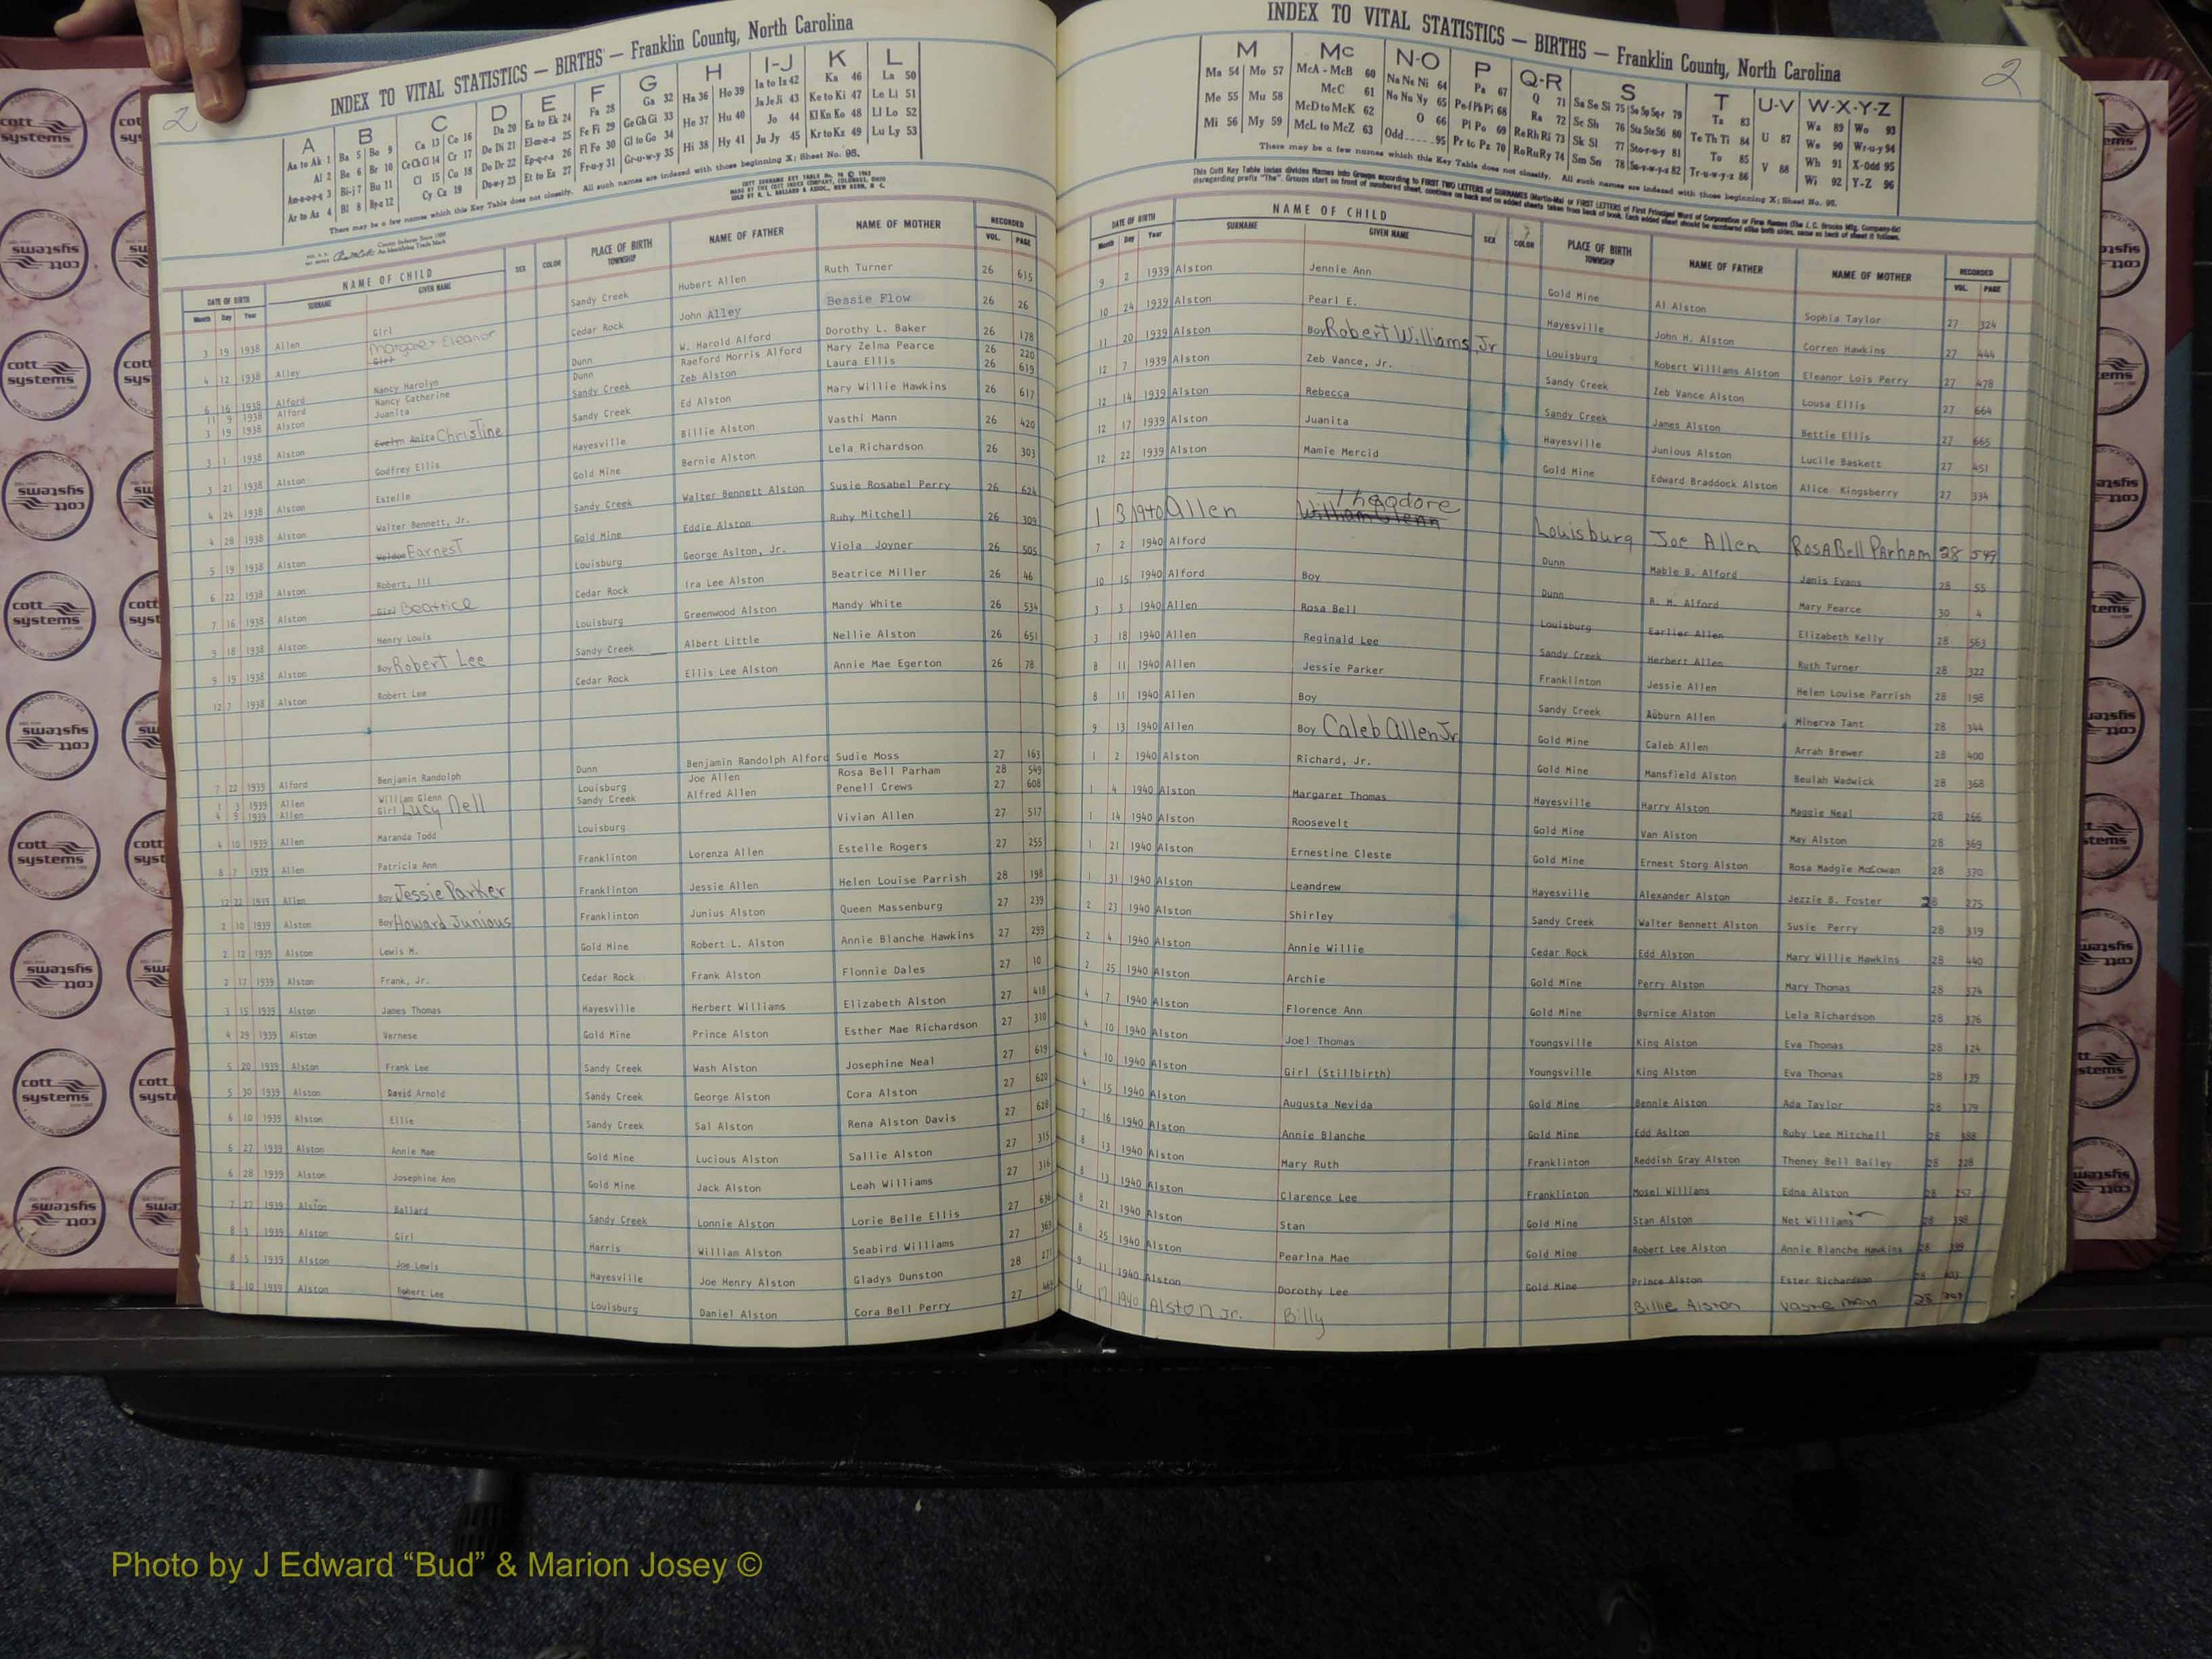 2
INDEX TO VITAL STATISTICS — BIRTHS — Franklin County, North Carolina
A B C D E F G H I-J K L
Aa to Ak 1 Ba 5 Bo 9 Ca 13 Co 16 Da 20 Ea to Ek 24 Fa 28 Ga 32 Ha 36 Ho 39 Ia to Iz 42 Ka 46 La 50
Al 2 Be 6 Br 10 Ce Ch Ci 14 Cr 17 De Di 21 El-m-n-o 25 Fe Fi 29 Ge Gh Gi 33 He 37 Hu 40 Ja Je Ji 43 Ke to Ki 47 Le Li 51
Am-n-o-p-q 3 Bi-j 7 Bu 11 Cl 15 Cu 18 Do Dr 22 Ep-q-r-s 26 Fl Fo 30 Gl to Go 34 Hi 38 Hy 41 Jo 44 Kl Kn Ko 48 Ll Lo 52
Ar to Az 4 Bl 8 By-z 12 Cy Cz 19 Du-w-y 23 Et to Ez 27 Fr-u-y 31 Gr-u-w-y 35 Ju Jy 45 Kr to Kz 49 Lu Ly 53
There may be a few names which this Key Table does not classify. All such names are indexed with those beginning X; Sheet No. 95.
DATE OF BIRTH NAME OF CHILD SEX COLOR PLACE OF BIRTH NAME OF FATHER NAME OF MOTHER RECORDED
Month Day Year SURNAME GIVEN NAME TOWNSHIP VOL. PAGE
3 19 1938 Allen Girl Sandy Creek Hubert Allen Ruth Turner 26 615
4 12 1938 Alley Girl Margaret Eleanor Cedar Rock John Alley Bessie Flow 26 26
6 16 1938 Alford Nancy Harolyn Dunn W. Harold Alford Dorothy L. Baker 26 178
11 9 1938 Alford Nancy Catherine Dunn Raeford Morris Alford Mary Zelma Pearce 26 220
3 19 1938 Alston Juanita Sandy Creek Zeb Alston Laura Ellis 26 619
3 1 1938 Alston Evelyn Anita Christine Sandy Creek Ed Alston Mary Willie Hawkins 26 617
3 21 1938 Alston Godfrey Ellis Hayesville Billie Alston Vasthi Mann 26 420
4 24 1938 Alston Estelle Gold Mine Bernie Alston Lela Richardson 26 303
4 28 1938 Alston Walter Bennett, Jr. Sandy Creek Walter Bennett Alston Susie Rosabel Perry 26 624
5 19 1938 Alston Weldon Earnest Gold Mine Eddie Alston Ruby Mitchell 26 309
6 22 1938 Alston Robert, III Louisburg George Aslton, Jr. Viola Joyner 26 505
7 16 1938 Alston Girl Beatrice Cedar Rock Ira Lee Alston Beatrice Miller 26 46
9 18 1938 Alston Henry Louis Louisburg Greenwood Alston Mandy White 26 534
9 19 1938 Alston Boy Robert Lee Sandy Creek Albert Little Nellie Alston 26 651
12 7 1938 Alston Robert Lee Cedar Rock Ellis Lee Alston Annie Mae Egerton 26 78
7 22 1939 Alford Benjamin Randolph Dunn Benjamin Randolph Alford Sudie Moss 27 163
1 3 1939 Allen William Glenn Louisburg Joe Allen Rosa Bell Parham 28 549
4 9 1939 Allen Girl Lucy Nell Sandy Creek Alfred Allen Penell Crews 27 608
4 10 1939 Allen Maranda Todd Louisburg Vivian Allen 27 517
8 7 1939 Allen Patricia Ann Franklinton Lorenza Allen Estelle Rogers 27 255
12 22 1939 Allen Boy Jessie Parker Franklinton Jessie Allen Helen Louise Parrish 28 198
2 10 1939 Alston Boy Howard Junious Franklinton Junius Alston Queen Massenburg 27 239
2 12 1939 Alston Lewis M. Gold Mine Robert L. Alston Annie Blanche Hawkins 27 299
2 17 1939 Alston Frank, Jr. Cedar Rock Frank Alston Flonnie Dales 27 10
3 15 1939 Alston James Thomas Hayesville Herbert Williams Elizabeth Alston 27 418
4 29 1939 Alston Vernese Gold Mine Prince Alston Esther Mae Richardson 27 310
5 20 1939 Alston Frank Lee Sandy Creek Wash Alston Josephine Neal 27 619
5 30 1939 Alston David Arnold Sandy Creek George Alston Cora Alston 27 620
6 10 1939 Alston Ellie Sandy Creek Sal Alston Rena Alston Davis 27 628
6 27 1939 Alston Annie Mae Gold Mine Lucious Alston Sallie Alston 27 315
6 28 1939 Alston Josephine Ann Gold Mine Jack Alston Leah Williams 27 316
7 27 1939 Alston Ballard Sandy Creek Lonnie Alston Lorie Belle Ellis 27 636
8 3 1939 Alston Girl Harris William Alston Seabird Williams 27 363
8 5 1939 Alston Joe Lewis Hayesville Joe Henry Alston Gladys Dunston 28 271
8 10 1939 Alston Robert Lee Louisburg Daniel Alston Cora Bell Perry 27
2
INDEX TO VITAL STATISTICS — BIRTHS — Franklin County, North Carolina
M Mc N-O P Q-R S T U-V W-X-Y-Z
Ma 54 Mo 57 McA - McB 60 Na Ne Ni 64 Pa 67 Q 71 Sa Se Si 75 So Sp Sq-r 79 Ta 83 U 87 Wa 89 Wo 93
Me 55 Mu 58 McC 61 No Nu Ny 65 Pe-f Ph Pi 68 Ra 72 Sc Sh 76 Sta Ste Sti 80 Te Th Ti 84 V 88 We 90 Wr-u-y 94
Mi 56 My 59 McD to McK 62 O 66 Pl Po 69 Re Rh Ri 73 Sk Sl 77 Sto-r-u-y 81 To 85 Wh 91 X-Odd 95
McL to McZ 63 Odd 95 Pr to Pz 70 Ro Ru Ry 74 Sm Sn 78 Su-v-w-y-z 82 Tr-u-w-y-z 86 Wi 92 Y-Z 96
There may be a few names which this Key Table does not classify. All such names are indexed with those beginning X; Sheet No. 95.
DATE OF BIRTH NAME OF CHILD SEX COLOR PLACE OF BIRTH NAME OF FATHER NAME OF MOTHER RECORDED
Month Day Year SURNAME GIVEN NAME TOWNSHIP VOL. PAGE
9 2 1939 Alston Jennie Ann Gold Mine Al Alston Sophia Taylor 27 324
10 24 1939 Alston Pearl E. Hayesville John H. Alston Corren Hawkins 27 444
11 20 1939 Alston Boy Robert Williams, Jr Louisburg Robert Williams Alston Eleanor Lois Perry 27 478
12 7 1939 Alston Zeb Vance, Jr. Sandy Creek Zeb Vance Alston Lousa Ellis 27 664
12 14 1939 Alston Rebecca Sandy Creek James Alston Bettie Ellis 27 665
12 17 1939 Alston Juanita Hayesville Junious Alston Lucile Baskett 27 451
12 22 1939 Alston Mamie Mercid Gold Mine Edward Braddock Alston Alice Kingsberry 27 334
1 3 1940 Allen William Glenn Theodore Louisburg Joe Allen Rosa Bell Parham 28 549
7 2 1940 Alford Dunn Mable B. Alford Janis Evans 28 55
10 15 1940 Alford Boy Dunn R. M. Alford Mary Pearce 30 4
3 3 1940 Allen Rosa Bell Louisburg Earlier Allen Elizabeth Kelly 28 563
3 18 1940 Allen Reginald Lee Sandy Creek Herbert Allen Ruth Turner 28 322
8 11 1940 Allen Jessie Parker Franklinton Jessie Allen Helen Louise Parrish 28 198
8 11 1940 Allen Boy Sandy Creek Auburn Allen Minerva Tant 28 344
9 13 1940 Allen Boy Caleb Allen Jr. Gold Mine Caleb Allen Arrah Brewer 28 400
1 2 1940 Alston Richard, Jr. Gold Mine Mansfield Alston Beulah Wadwick 28 368
1 4 1940 Alston Margaret Thomas Hayesville Harry Alston Maggie Neal 28 266
1 14 1940 Alston Roosevelt Gold Mine Van Alston May Alston 28 369
1 21 1940 Alston Ernestine Cleste Gold Mine Ernest Storg Alston Rosa Madgie McGowan 28 370
1 31 1940 Alston Leandrew Hayesville Alexander Alston Jezzie B. Foster 28 275
2 23 1940 Alston Shirley Sandy Creek Walter Bennett Alston Susie Perry 28 319
2 4 1940 Alston Annie Willie Cedar Rock Edd Alston Mary Willie Hawkins 28 440
2 25 1940 Alston Archie Gold Mine Perry Alston Mary Thomas 28 374
4 7 1940 Alston Florence Ann Gold Mine Burnice Alston Lela Richardson 28 376
4 10 1940 Alston Joel Thomas Youngsville King Alston Eva Thomas 28 124
4 10 1940 Alston Girl (Stillbirth) Youngsville King Alston Eva Thomas 28 139
4 15 1940 Alston Augusta Nevida Gold Mine Bennie Alston Ada Taylor 28 379
7 16 1940 Alston Annie Blanche Gold Mine Edd Aslton Ruby Lee Mitchell 28 388
8 13 1940 Alston Mary Ruth Franklinton Reddish Gray Alston Theney Bell Bailey 28 228
8 13 1940 Alston Clarence Lee Franklinton Mosel Williams Edna Alston 28 257
8 21 1940 Alston Stan Gold Mine Stan Alston Net Williams 28 398
8 25 1940 Alston Pearlna Mae Gold Mine Robert Lee Alston Annie Blanche Hawkins 28 399
9 11 1940 Alston Dorothy Lee Gold Mine Prince Alston Ester Richardson 28 403
17 1940 Alston Jr. Billy Billie Alston 28
Photo by J Edward “Bud” & Marion Josey ©
cott systems